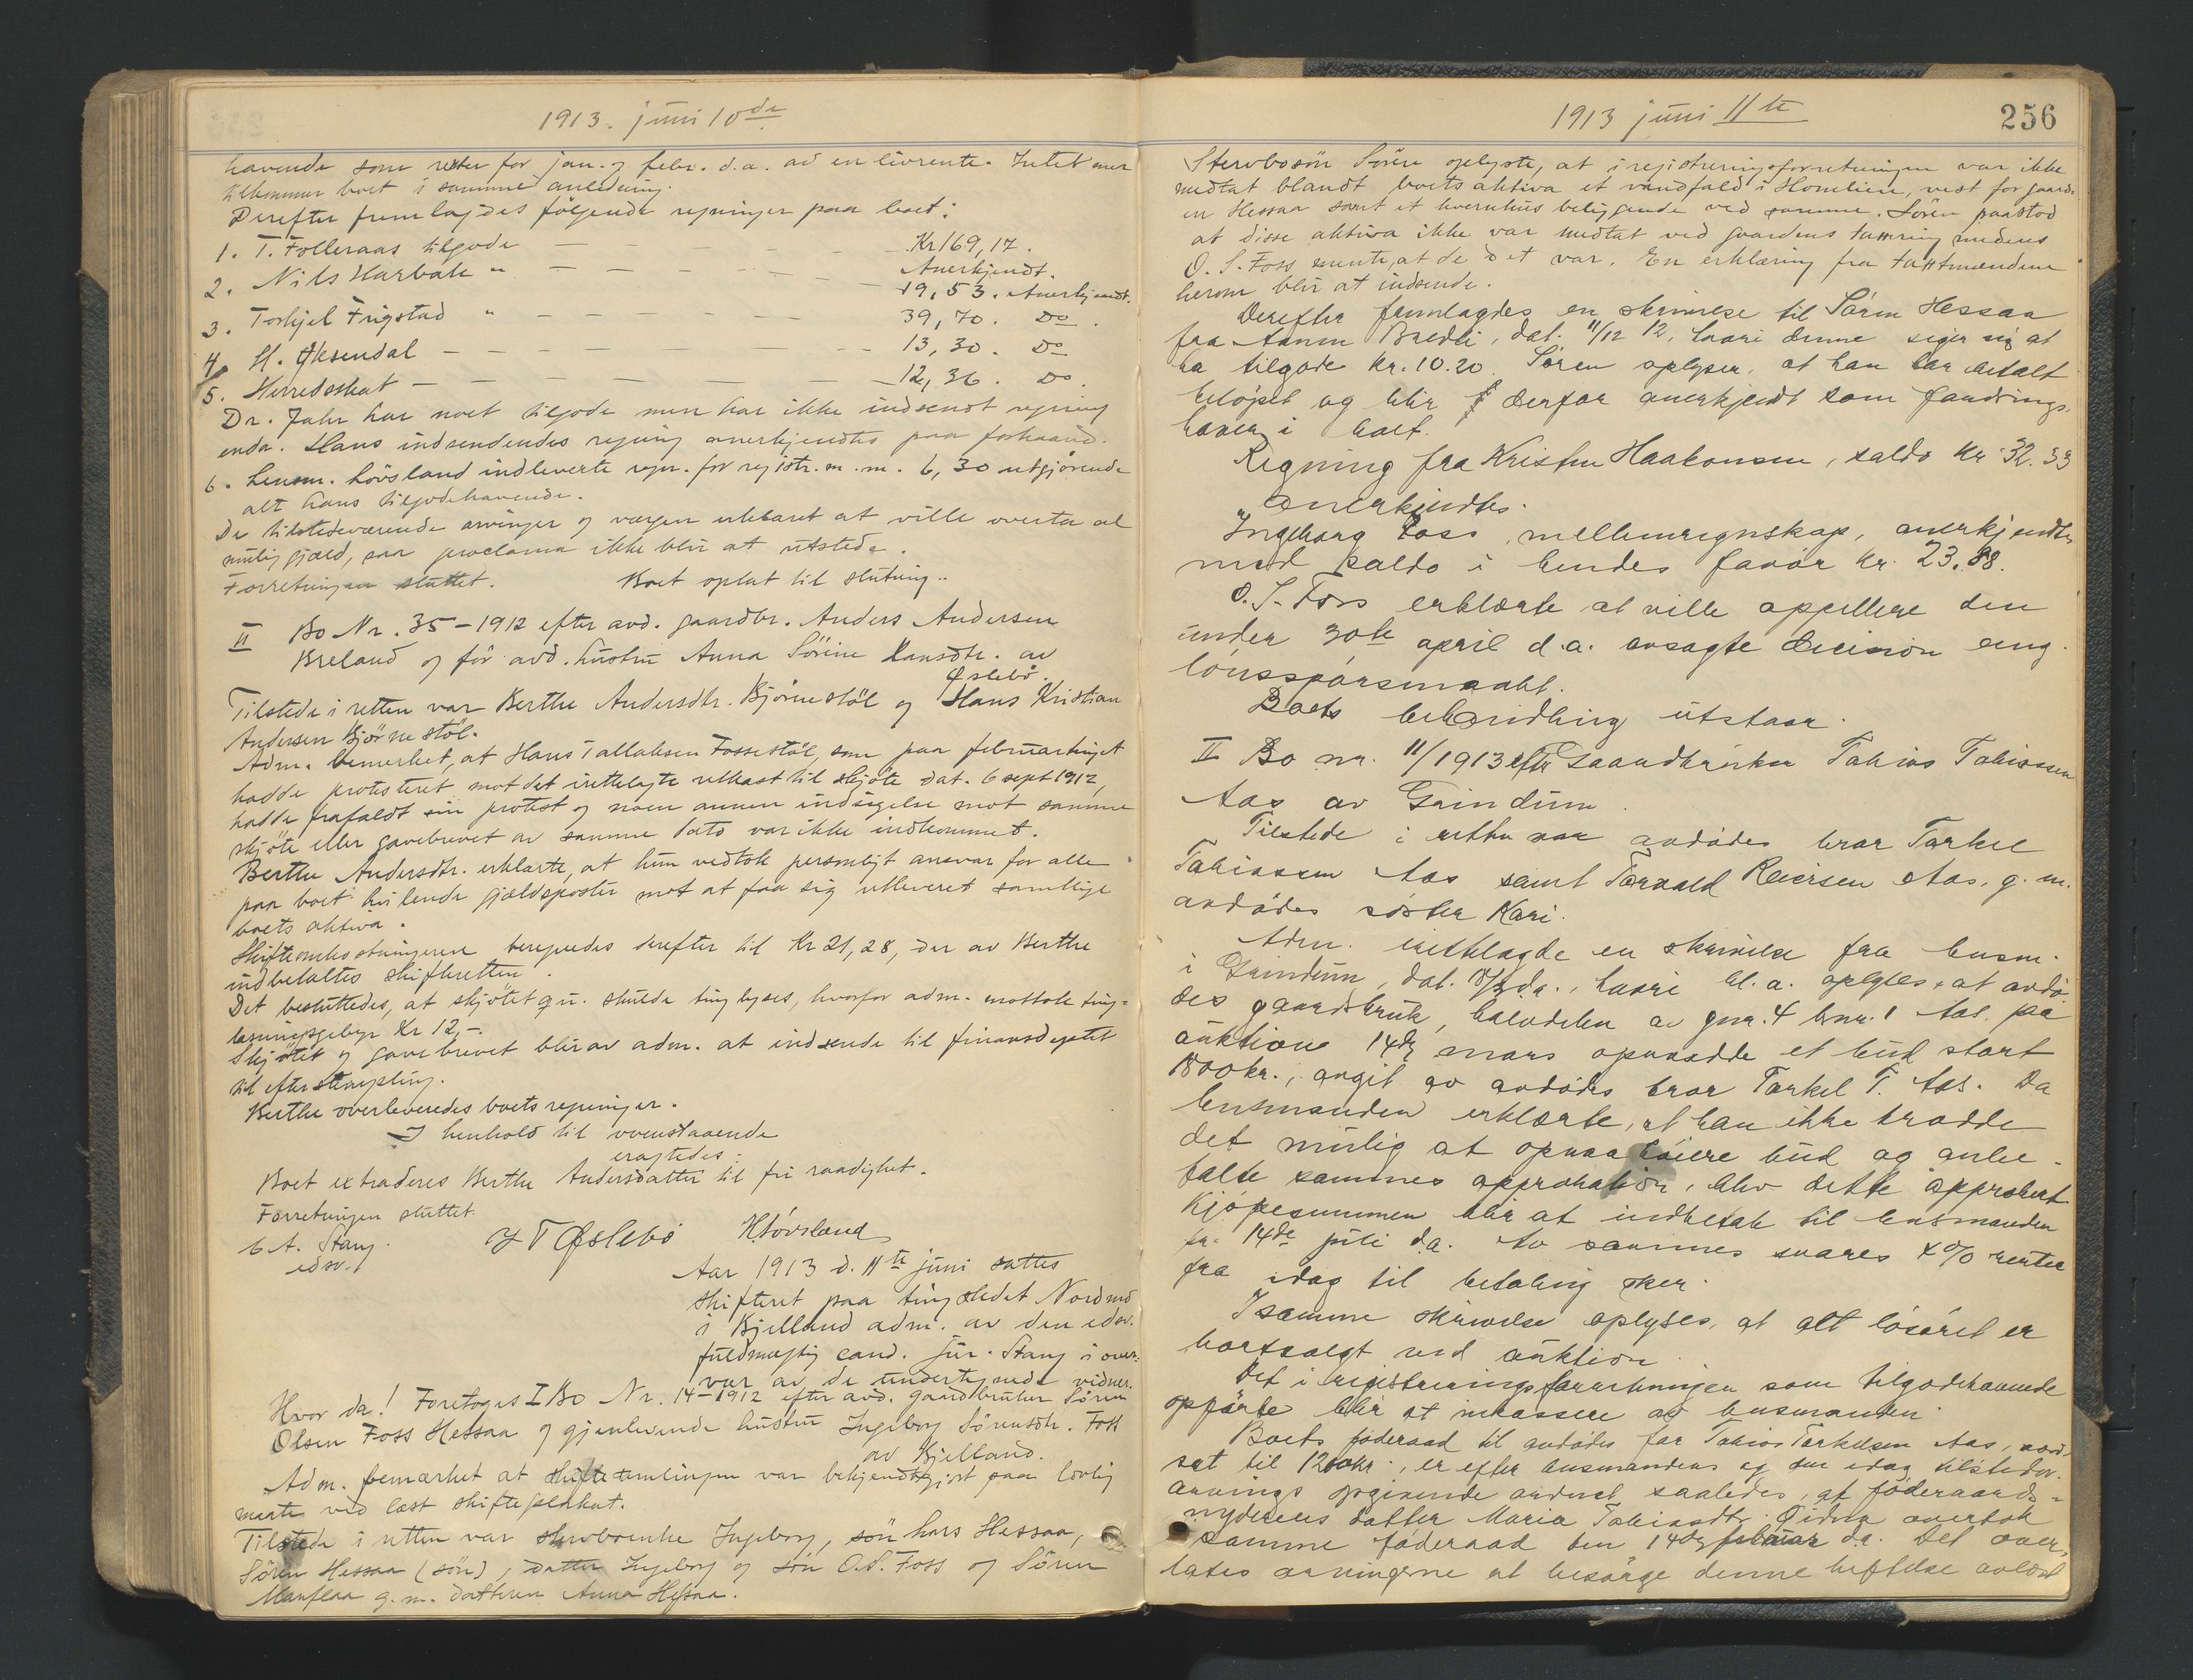 1913. juni 10de
havende som rester for jan. og febr. d.a. av en livrente. Intet mer
tilkommer boet i samme anledning.
Derefter fremlagdes følgende regninger paa boet:
1. T. Folleraas tilgode — — — — Kr 169,17.
Anerkjendt.
2. Nils Harbak " — — — — 19,53. Anerkjendt.
3. Torkjel Frigstad " — — — — 39,70. Do.
4. H. Øksendal — — — — 13,30. Do
5. Herredsskat — — — — 12,36. Do.
Dr. Jahr har noet tilgode men har ikke indsendt regning
enda. Hans indsendendes regning anerkjendtes paa forhaand.
6. Lensm. Lövsland indleverte regn. for registr. m.m. 6,30 utgjörende
alt hans tilgodehavende.
De tilstedeværende arvinger og vergen erklæret at ville overta al
mulig gjæld, saa proclama ikke blir at utstede.
Forretningen sluttet. Boet optat til slutning.
II Bo Nr. 35-1912 efter avd. gaardbr. Anders Andersen
Breland og för avd. hustru Anna Sörine Hansdtr. av
Øslebö.
Tilstede i retten var Berthe Andersdtr. Bjørnestöl og Hans Kristian
Andersen Bjørnestöl.
Adm. bemerket, at Hans Tallaksen Fossestöl, som paa februartinget
hadde protesteret mot det irettelagte utkast til skjöte dat. 6 sept 1912,
hadde frafaldt sin protest og noen annen indsigelse mot samme
skjöte eller gavebrevet av samme dato var ikke indkommet.
Berthe Andersdtr. erklærte, at hun vedtok personligt ansvar for alle
paa boet hvilende gjældsposter mot at faa sig utleveret samtlige
boets aktiva.
Skifteomkostningerne beregnedes derefter til Kr 21,28, der av Berthe
indbetaltes skifteretten.
Det besluttedes, at skjötet qu. skulde tinglyses, hvorfor adm. mottok ting=
læsningsgebyr Kr 12,-.
Skjötet og gavebrevet blir av adm. at indsende til finansdeptet
til efterstempling.
Berthe overleveredes boets regninger.
I henhold til ovenstaaende
eragtedes:
Boet extraderes Berthe Andersdatter til fri raadighet.
Forretningen sluttet.
C A. Stang
edsv.
J T Øslebö H Lövsland
Aar 1913 d. 11te juni sattes
skifteret paa tingstedet Nordmo
i Bjelland adm. av den edsv.
fuldmægtig cand. jur. Stang i over=
vær av de undertegnede vidner.
Hvor da! Foretoges I Bo Nr. 14-1912 efter avd. gaardbruker Sören
Olsen Foss Hessaa og gjenlevende hustru Ingeborg Sörensdtr. Foss
av Bjelland.
Adm. bemærket at skiftesamlingen var bekjendtgjort paa lovlig
maate ved læst skifteplakat.
Tilstede i retten var stervboenke Ingeborg, sön Lars Hessaa,
Sören Hessaa (sön), datter Ingeborg og sön O.S. Foss og Sören
Manflaa g.m. datteren Anna Hessaa.
1913 juni 11te
256
Stervbosön Sören oplyste, at i registreringsforretningen var ikke
medtat blandt boets aktiva et vandfald i Homlien, vest for gaard-
en Hessaa samt et kvernhus beliggende ved samme. Sören paastod
at disse aktiva ikke var medtat ved gaardens taxering medens
O. S. Foss mente, at de det var. En erklæring fra taxtmændene
herom blir at indsende.
Derefter fremlagdes en skrivelse til Sören Hessaa
fra Bredli, dat. 11/12 12, hvori denne siger sig at
ha tilgode Kr. 10.20. Sören oplyser, at han har betalt
belöpet og blir derfor anerkjendt som fordrings-
haver i boet.
Regning fra Kristen Haakonsen, saldo Kr 32.33
anerkjendtes.
Ingeborg Foss, mellemregnskap, anerkjendtes
med saldo i hendes favör kr. 23.88.
O. S. Foss erklærte at ville appellere den
under 30te april d.a. avsagte decision ang.
lönsspörsmaalet.
Boets behandling utstaar.
II Bo nr. 11/1913 efter Gaardbruker Tobias Tobiassen
Aas av Grindum.
Tilstede i retten var avdödes bror Torkel
Tobiassen Aas samt Torvald Reiersen Aas, g. m.
avdödes söster Kari.
Adm. irettelagde en skrivelse fra lensm.
i Grindum, dat. d.a., hvori bl. a. oplyses, at avdö-
des gaardsbruk, halvdelen av gnr. 4 bnr. 1 Aas. paa
auktion 14de mars opnaadde et bud stort
1800 kr., angit av avdödes bror Torkel T. Aas. Da
lensmanden erklærte, at han ikke trodde
det mulig at opnaa höiere bud og anbe-
falte sammes approbation, blev dette approbert.
Kjöpesummen blir at indbetale til lensmanden
14de juli d.a. Av sammes svares 4% renter
fra idag til betaling sker.
I samme skrivelse oplyses, at alt lösöret er
bortsolgt ved auktion.
Det i registreringsforretningen som tilgodehavende
opförte blir at inkassere av lensmanden.
Boets föderaad til avdödes far Tobias Torkelsen Aas, ansl
sat til 1200 kr., er efter lensmandens og den idag tilstedev.
arvings opgivende ordnet saaledes, at föderaads-
nyderens datter Maria Tobiasdtr. overtok
samme föderaad den 14de februar d.a. Det over-
lates arvingerne at besörge denne heftelse avlöst